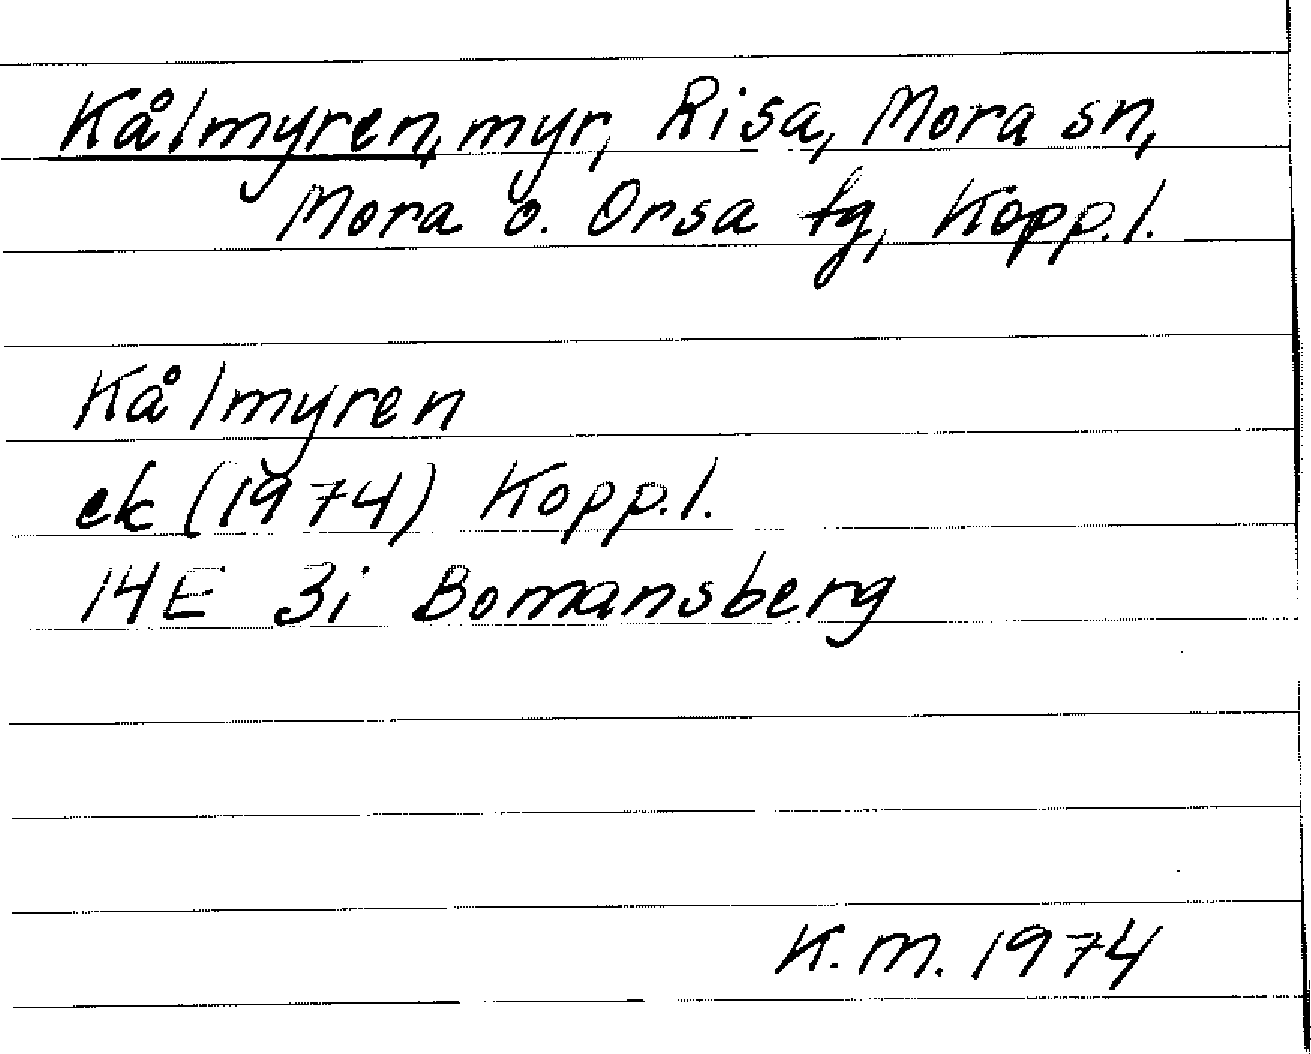 Kålmyren, myr, Risa, Mora sn,
Mora o. Orsa tg, Kopp.l.
Kålmyren
ek (1974) Kopp.l.
14E 3i Bomansberg
K.M. 1974